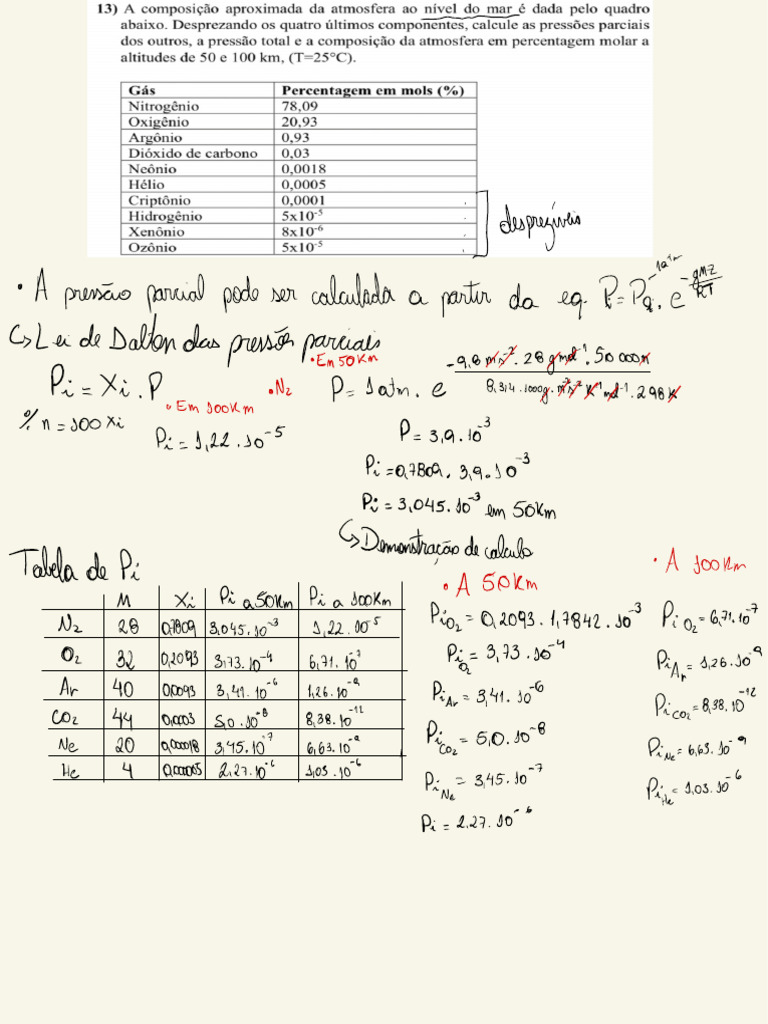 13) A composição aproximada da atmosfera ao nível do mar é dada pelo quadro
abaixo. Desprezando os quatro últimos componentes, calcule as pressões parciais
dos outros, a pressão total e a composição da atmosfera em percentagem molar a
altitudes de 50 e 100 km, (T=25°C).
Gás Percentagem em mols (%)
Nitrogênio 78,09
Oxigênio 20,93
Argônio 0,93
Dióxido de carbono 0,03
Neônio 0,0018
Hélio 0,0005
Criptônio 0,0001
Hidrogênio 5x10⁻⁵
Xenônio 8x10⁻⁶
Ozônio 5x10⁻⁵
desprezíveis
• A pressão parcial pode ser calculada a partir da eq. P=P₀.e^-gMZ/RT
1atm
↳ Lei de Dalton das pressões parciais
Pi = Xi . P
% n = 100 Xi
• Em 50Km
• N₂
P = 1atm. e -9,8 m s⁻². 28 g mol⁻¹. 50 000m
8,314.1000g.m²s⁻² K⁻¹ mol⁻¹.298K
• Em 100Km
Pi = 1,22.10⁻⁵
P = 3,9.10⁻³
Pi = 0,7809. 3,9.10⁻³
Pi = 3,045.10⁻³ em 50Km
↳ Demonstração de calculo
Tabela de Pi
M Xi Pi a 50Km Pi a 100Km
N₂ 28 0,7809 3,045.10⁻³ 1,22.10⁻⁵
O₂ 32 0,2093 3,73.10⁻⁴ 6,71.10⁻⁷
Ar 40 0,0093 3,41.10⁻⁶ 1,26.10⁻⁹
CO₂ 44 0,0003 5,0.10⁻⁸ 8,38.10⁻¹²
Ne 20 0,000018 3,45.10⁻⁷ 6,63.10⁻⁹
He 4 0,000005 2,27.10⁻⁶ 1,03.10⁻⁶
• A 50Km
Pi O₂ = 0,2093. 1,7842.10⁻³
Pi O₂ = 3,73.10⁻⁴
Pi Ar = 3,41.10⁻⁶
Pi CO₂ = 5,0.10⁻⁸
Pi Ne = 3,45.10⁻⁷
Pi = 2,27.10⁻⁶
• A 100Km
Pi O₂ = 6,71.10⁻⁷
Pi Ar = 1,26.10⁻⁹
Pi CO₂ = 8,38.10⁻¹²
Pi Ne = 6,63.10⁻⁹
Pi He = 1,03.10⁻⁶